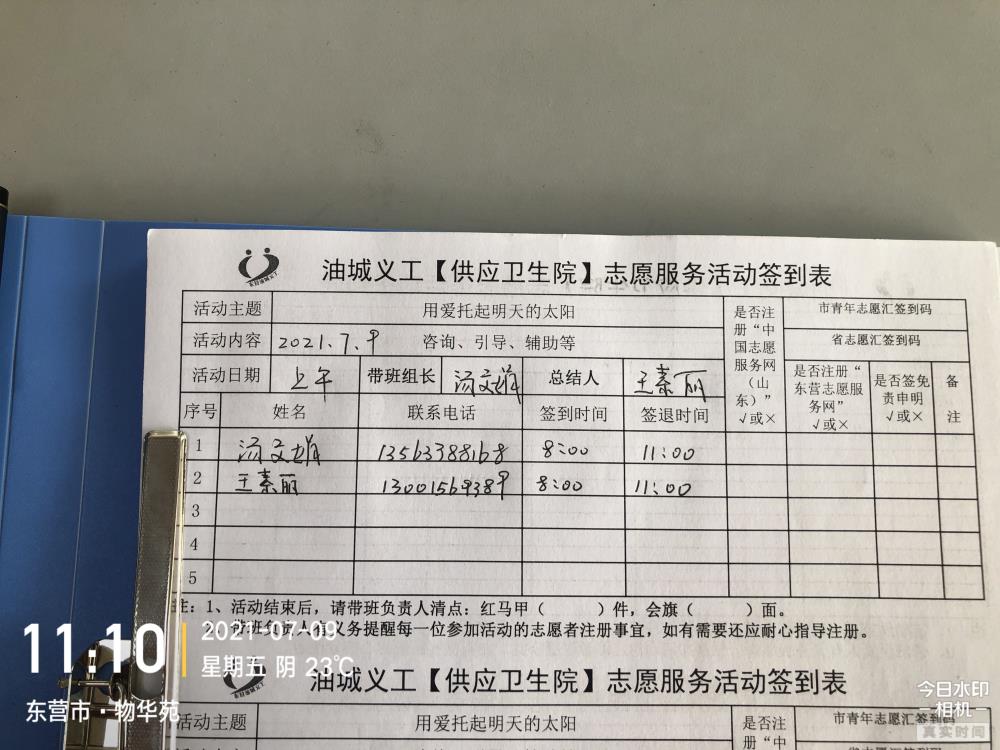 油城义工【供应卫生院】志愿服务活动签到表
活动主题 用爱托起明天的太阳 是否注册“中国志愿服务网（山东）”√或× 市青年志愿汇签到码
活动内容 2021.7.9 咨询、引导、辅助等 省志愿汇签到码
活动日期 上午 带班组长 汤文娟 总结人 王素丽 是否注册“东营志愿服务网”√或× 是否签免责申明√或× 备注
序号 姓名 联系电话 签到时间 签退时间
1 汤文娟 13563388168 8:00 11:00
2 王素丽 13001569389 8:00 11:00
3
4
5
注：1、活动结束后，请带班负责人清点：红马甲（ ）件，会旗（ ）面。
2、带班负责人有义务提醒每一位参加活动的志愿者注册事宜，如有需要还应耐心指导注册。
油城义工【供应卫生院】志愿服务活动签到表
活动主题 用爱托起明天的太阳 是否注册“中 市青年志愿汇签到码
11:10
2021-07-09
星期五 阴 23℃
东营市·物华苑
今日水印
相机
真实时间